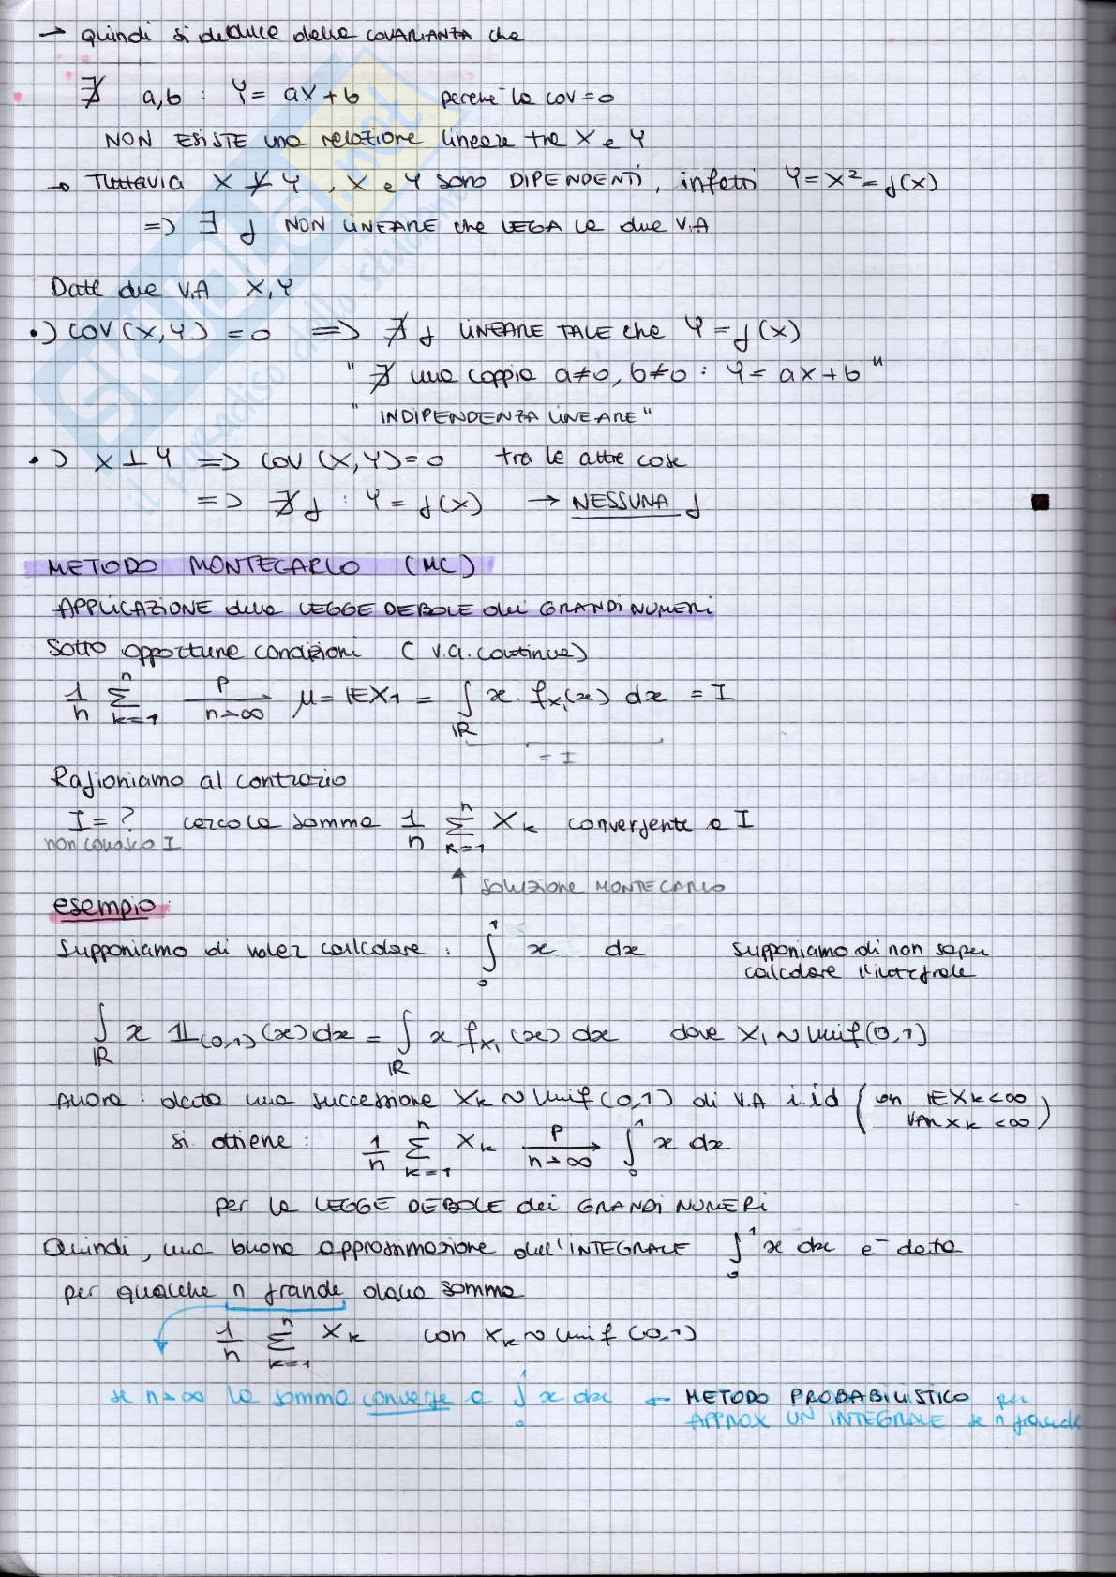 → Quindi si deduce dalla COVARIANZA che
∄ a,b : Y= aX+b perché la cov=0
NON ESISTE una relazione lineare tra X e Y
→ TUTTAVIA X ⊥̸ Y , X e Y sono DIPENDENTI, infatti Y=X²=f(X)
=> ∃ f NON LINEARE che LEGA le due V.A
Date due V.A X,Y
•) COV(X,Y) = 0 => ∄ f LINEARE TALE che Y=f(X)
"∄ una coppia a≠0, b≠0 : Y= ax+b"
"INDIPENDENZA LINEARE"
•) X⊥Y => COV (X,Y)=0 tra le altre cose
=> ∄ f : Y= f(X) → NESSUNA f
METODO MONTECARLO (MC)
APPLICAZIONE della LEGGE DEBOLE dei GRANDI NUMERI
Sotto opportune condizioni (v.a. continue)
1/n Σ_{k=1}^{n} —P/n→∞→ μ=𝔼X₁ = ∫_ℝ x f_{X₁}(x) dx = I
= I
Ragioniamo al contrario
I=? cerco la somma 1/n Σ_{k=1}^{n} X_k convergente a I
non conosco I
↑ SOLUZIONE MONTECARLO
esempio:
Supponiamo di voler calcolare : ∫₀¹ x dx Supponiamo di non saper
calcolare l'integrale
∫_ℝ x 𝟙_{(0,1)}(x)dx = ∫_ℝ x f_{X₁}(x) dx dove X₁ ~ Unif(0,1)
Allora : data una successione X_k ~ Unif(0,1) di V.A i.i.d (con 𝔼X_k<∞
VAR X_k <∞)
si ottiene : 1/n Σ_{k=1}^{n} X_k —P/n→∞→ ∫₀¹ x dx
per la LEGGE DEBOLE dei GRANDI NUMERI
Quindi, una buona approssimazione dell'INTEGRALE ∫₀¹ x dx è data
per qualche n grande dalla somma
1/n Σ_{k=1}^{n} X_k con X_k ~ Unif (0,1)
se n→∞ la somma converge a ∫₀¹ x dx ← METODO PROBABILISTICO per
APPROX UN INTEGRALE se n grande
SKUOLA.net
il paradiso dello studente